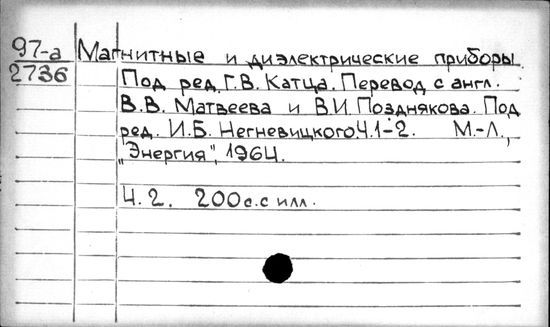 97-а Магнитные и диэлектрические приборы.
2736 Под ред. Г.В. Катца. Перевод с англ.
В.В. Матвеева и В.И. Позднякова. Под
ред. И.Б. Негневицкого.Ч.1-2. М.-Л.,
"Энергия", 1964.
Ч. 2. 200с.с илл.